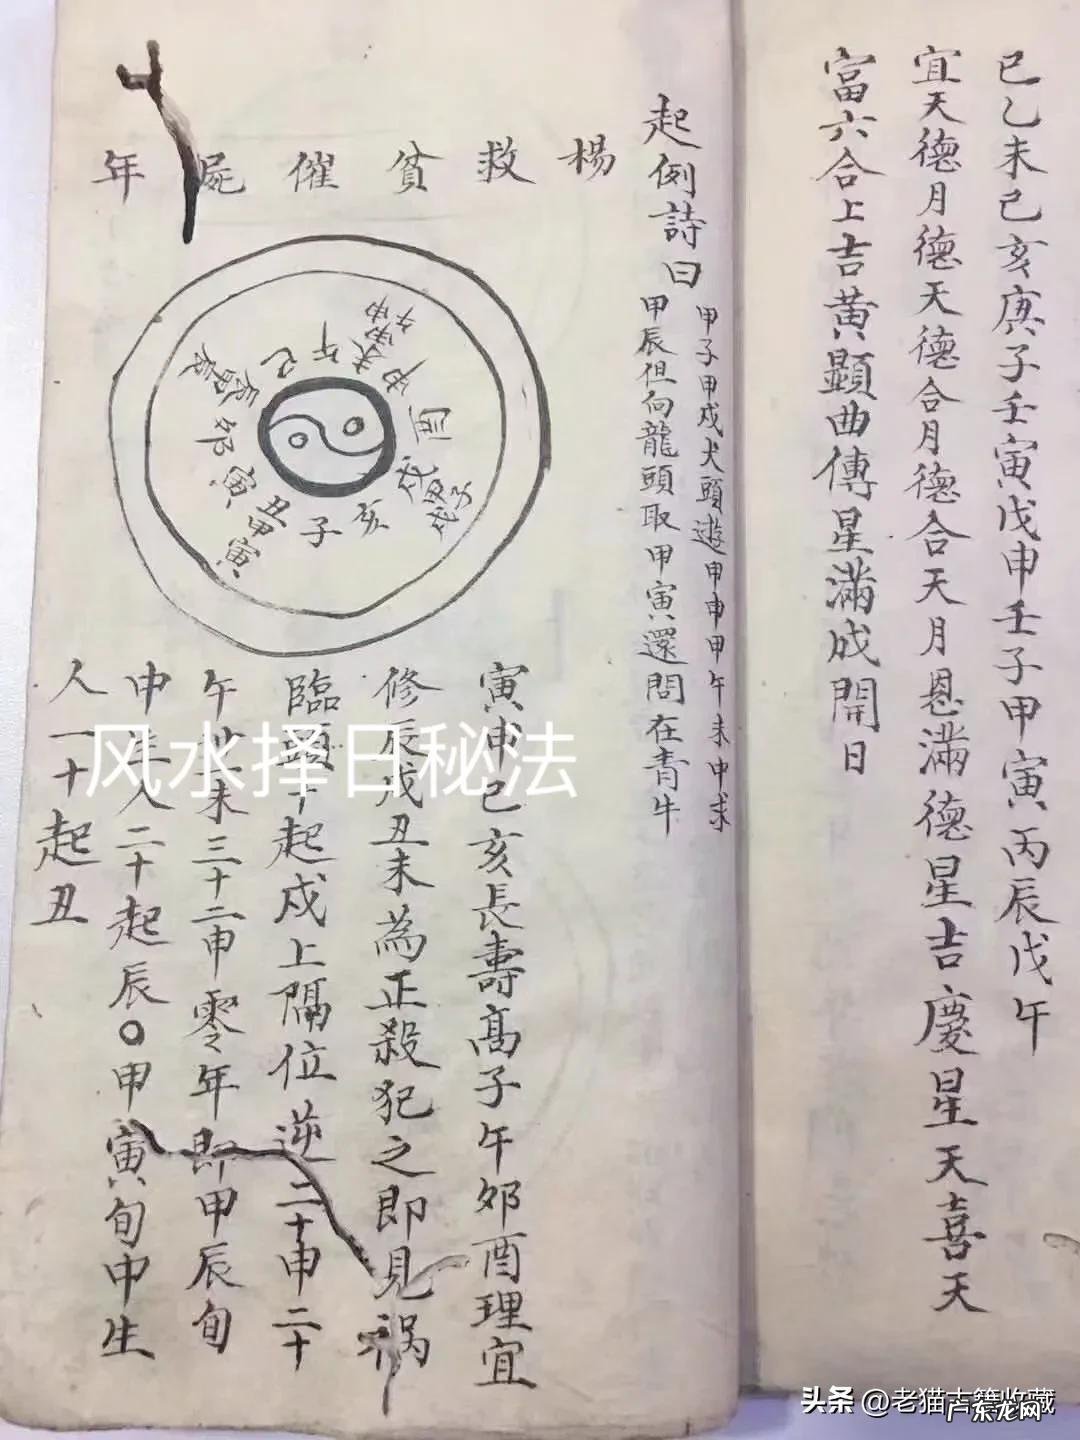 己乙未己亥庚子壬寅戊申壬子甲寅丙辰戊午
宜天德月德天德合月德合天月恩滿德星吉慶星天喜天
富六合上吉黃顯曲傳星滿成開日
起例詩曰
甲子甲戌犬頭遊甲申甲午未申求
甲辰但向龍頭取甲寅還問在青牛
楊救貧催屍年
午巳
卯
寅
丑
子
亥
戌
酉
申
寅申巳亥長壽高子午卯酉理宜
修辰戌丑未為正殺犯之即見禍
臨頭 起戌上隔位逆二十申二十
午 未三十二申零年即甲辰旬
申 人二十起辰〇甲寅旬中生
人一十起丑
风水择日秘法
头条 @老猫古籍收藏
广东龙网